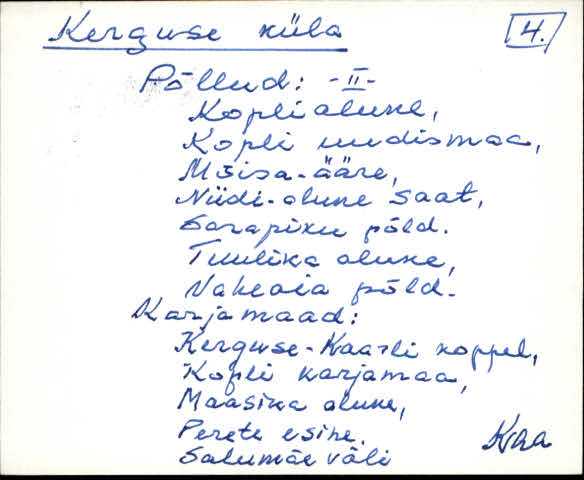 Kerguse küla
4.
Põllud: -II-
Koplialune,
Kopli uudismaa,
Mõisa-ääre,
Niidi-alune saat,
Sarapiku põld.
Tuulika alune,
Vaheaia põld.
Karjamaad:
Kerguse-Kaarli koppel,
Kopli karjamaa,
Maasika alune,
Perete esine.
Salumäe väli
Kraa